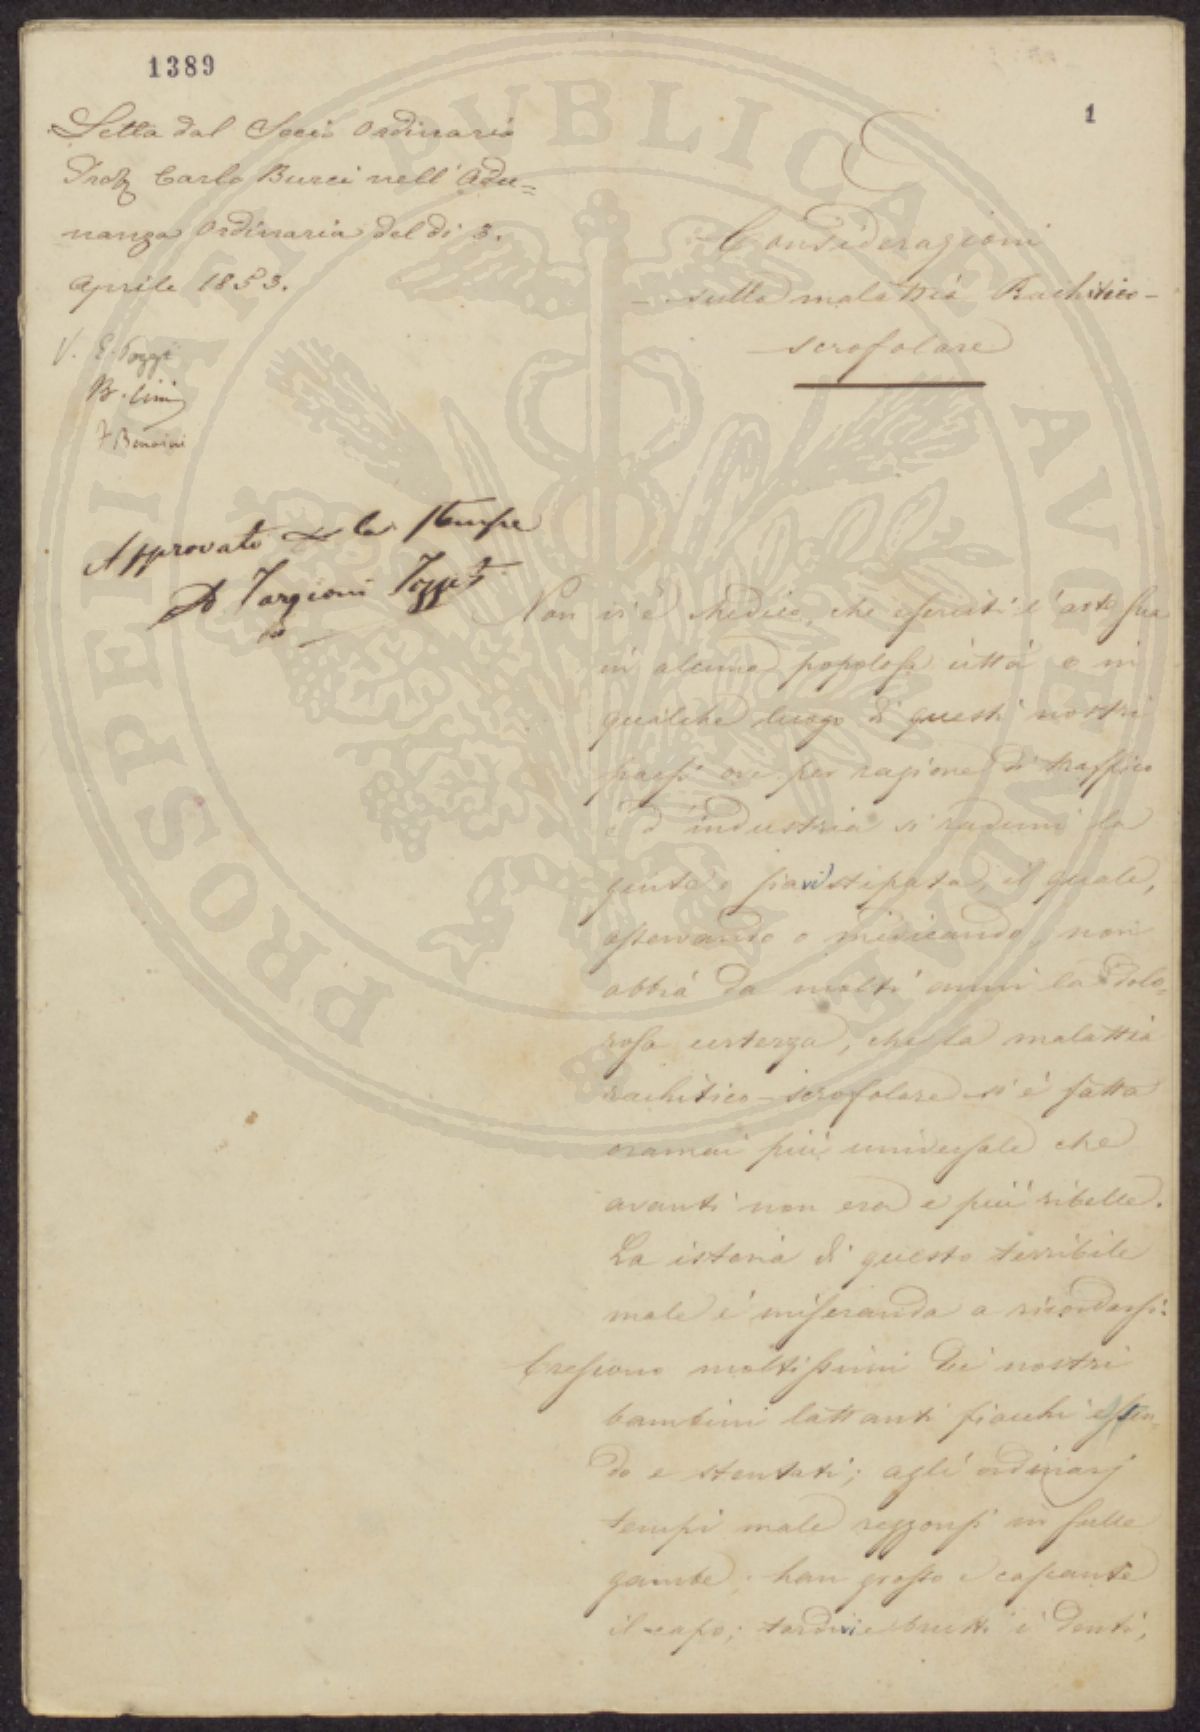 1389
1
Letta dal Socio Ordinario
Prof Carlo Burci nell' Adu=
nanza Ordinaria del di 3.
Aprile 1853.
V. E. Poggi
Considerazioni
sulla malattia Rachitico-
scrofolare
Approvato la stampa
Targioni
Non vi è Medico, che eserciti l'arte sua
in alcuna popolosa città o in
qualche luogo di questi nostri
paesi ove per ragione di traffico
e d'industria si raduni la
gente e siavi stipata, il quale,
osservando o medicando, non
abbia da molti anni la dolo=
rosa certezza, che la malattia
rachitico-scrofolare si è fatta
oramai più universale che
avanti non era e più ribelle.
La istoria di questo terribile
male è miseranda a ricordarsi.
Crescono moltissimi dei nostri
bambini lattanti fiacchi
e stentati; agli ordinarj
tempi male reggonsi in sulle
gambe; han grosso e cascante
il capo; tardivi e brutti i denti,
PROSPERITATI PVBLICAE AVGENDAE